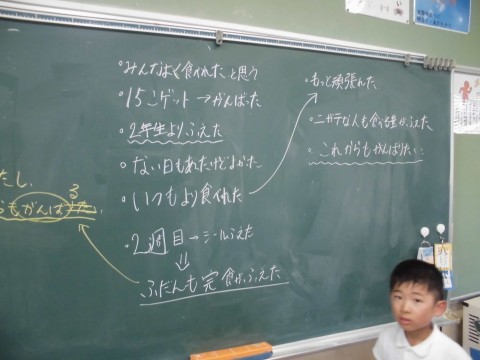 ・みんなよく食べれたと思う
・15こゲット→がんばった
・2年生よりふえた
・ない日もあたけどよかた
・いつもより食べれた
・2週目→シールふえた
⇓
ふだんも完食がふえた
・もっと頑張れた
・ニガテな人も食べる量がふえた
・これからもがんばりたい
たし.
る
もがんばりた.